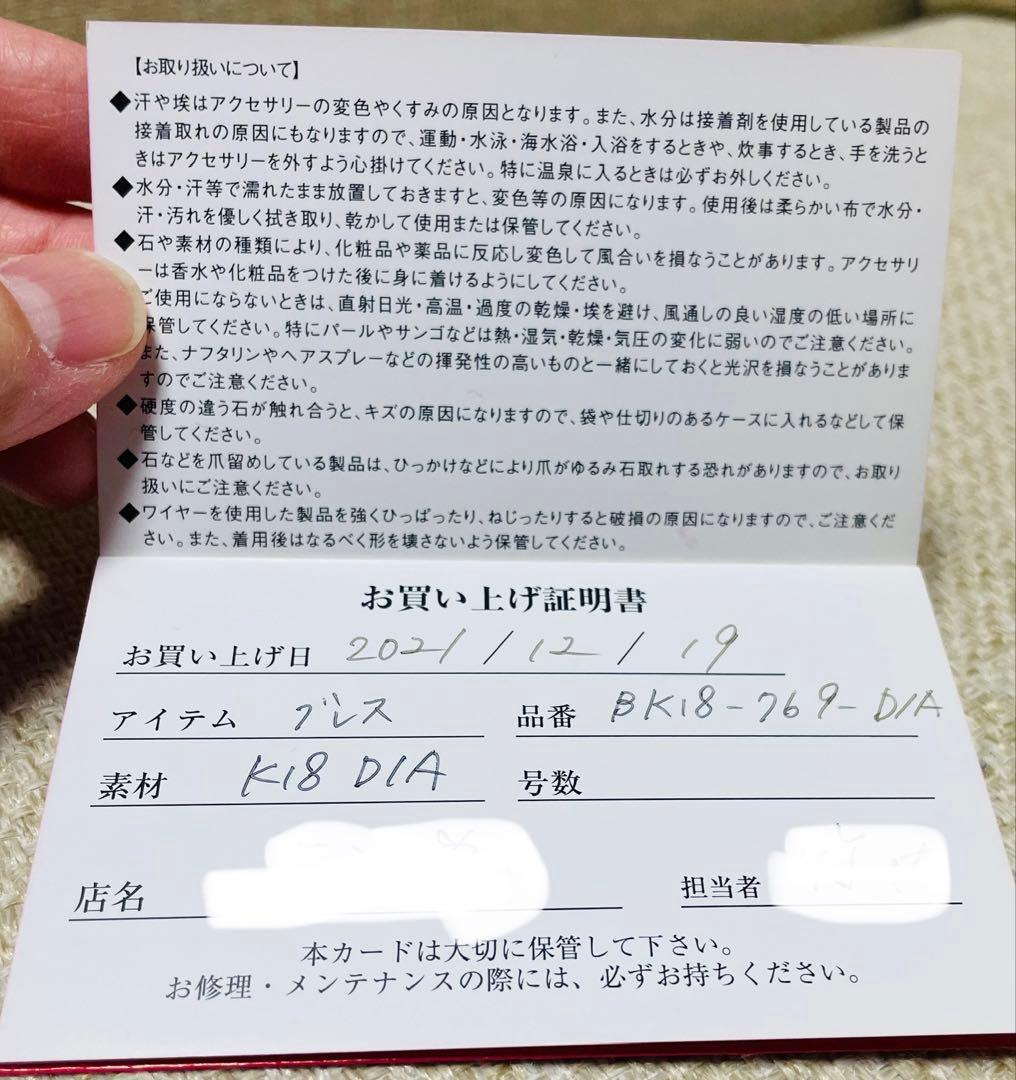 【お取り扱いについて】
◆汗や埃はアクセサリーの変色やくすみの原因となります。また、水分は接着剤を使用している製品の
接着取れの原因にもなりますので、運動・水泳・海水浴・入浴をするときや、炊事するとき、手を洗うと
きはアクセサリーを外すよう心掛けてください。特に温泉に入るときは必ずお外しください。
◆水分・汗等で濡れたまま放置しておきますと、変色等の原因になります。使用後は柔らかい布で水分・
汗・汚れを優しく拭き取り、乾かして使用または保管してください。
◆石や素材の種類により、化粧品や薬品に反応し変色して風合いを損なうことがあります。アクセサリ
ーは香水や化粧品をつけた後に身に着けるようにしてください。
ご使用にならないときは、直射日光・高温・過度の乾燥・埃を避け、風通しの良い湿度の低い場所に
保管してください。特にパールやサンゴなどは熱・湿気・乾燥・気圧の変化に弱いのでご注意ください。
また、ナフタリンやヘアスプレーなどの揮発性の高いものと一緒にしておくと光沢を損なうことがありま
すのでご注意ください。
◆硬度の違う石が触れ合うと、キズの原因になりますので、袋や仕切りのあるケースに入れるなどして保
管してください。
◆石などを爪留めしている製品は、ひっかけなどにより爪がゆるみ石取れする恐れがありますので、お取り
扱いにご注意ください。
◆ワイヤーを使用した製品を強くひっぱったり、ねじったりすると破損の原因になりますので、ご注意くだ
さい。また、着用後はなるべく形を壊さないよう保管してください。
お買い上げ証明書
お買い上げ日 2021/12/19
アイテム ブレス 品番 BK18-769-DIA
素材 K18 DIA 号数
店名 担当者
本カードは大切に保管して下さい。
お修理・メンテナンスの際には、必ずお持ちください。